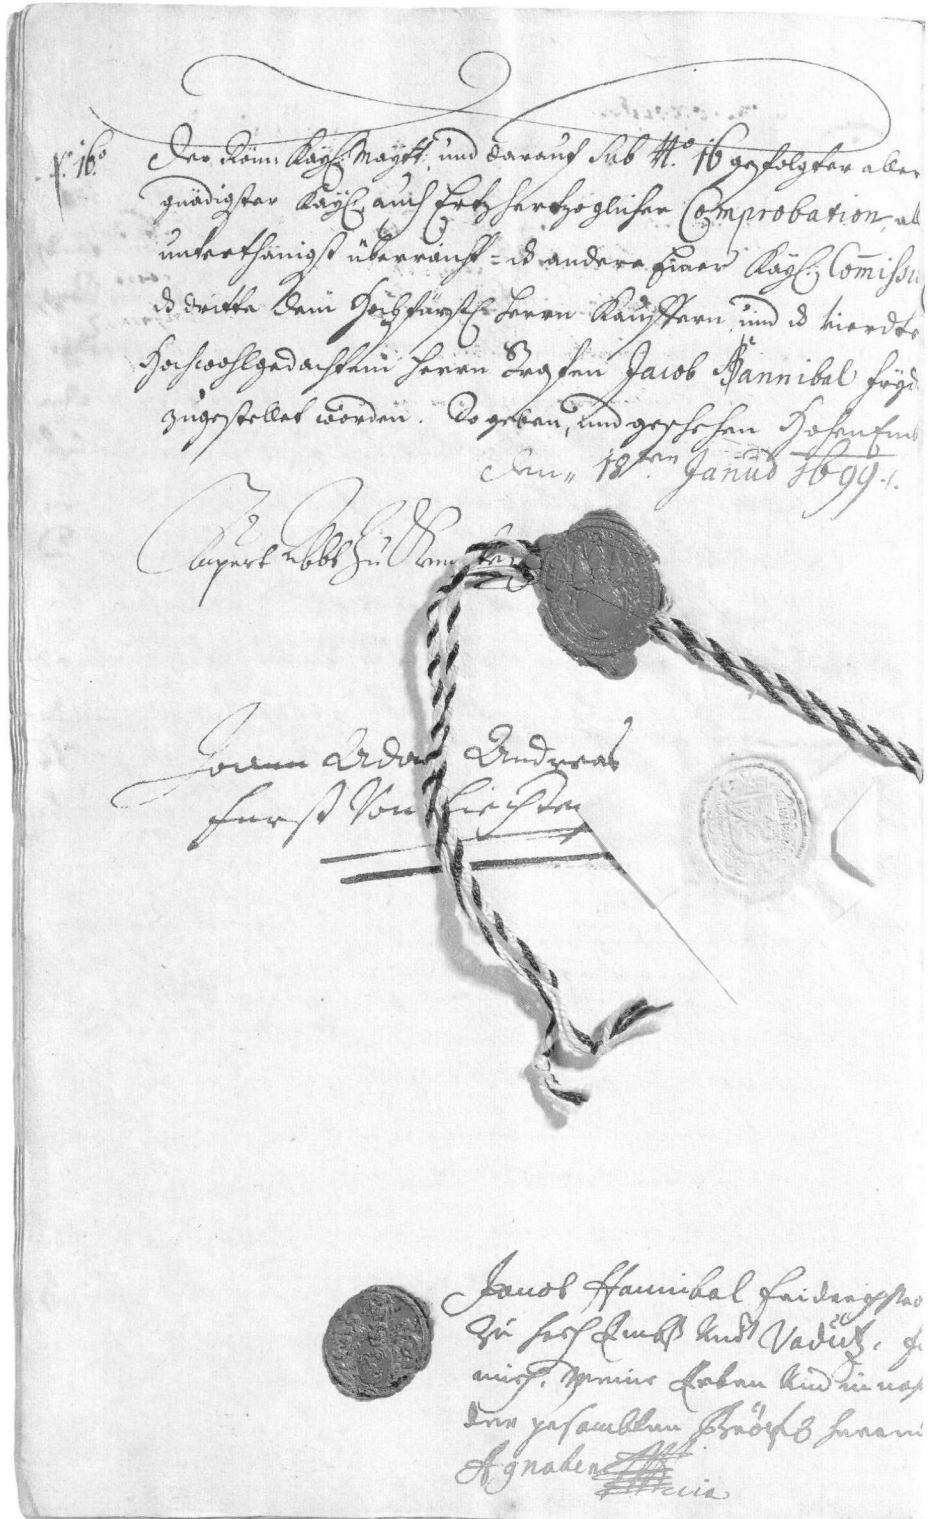 N.° 16.°
Der Röm: Kaÿß: Maÿtt: und darauf sub N.° 16 gefolgter aller
gnädigster Kaÿß: auch Ertzhertzoglicher Comprobation, al
unterthänigst überraicht = dz andere Einer Kaÿß: Comissi
dz dritte dem Hochfürstl: Herrn Kauffern, und dz vierdte
Hochwohlgedachtem Herrn Grafen Jacob Hannibal Fryd
zugestellet worden. So geben, und geschehen HohenEmbs
den 18.ten Januar 1699.
Rupert Abbt zu
Joann Adam Andreas
Fürst Von Liechten
Jacob Hannibal Friderich
zu Hoch Embß Und Vadutz, F
mich, Meine Erben Und in nah
der gesambten Herrn
Agnaten